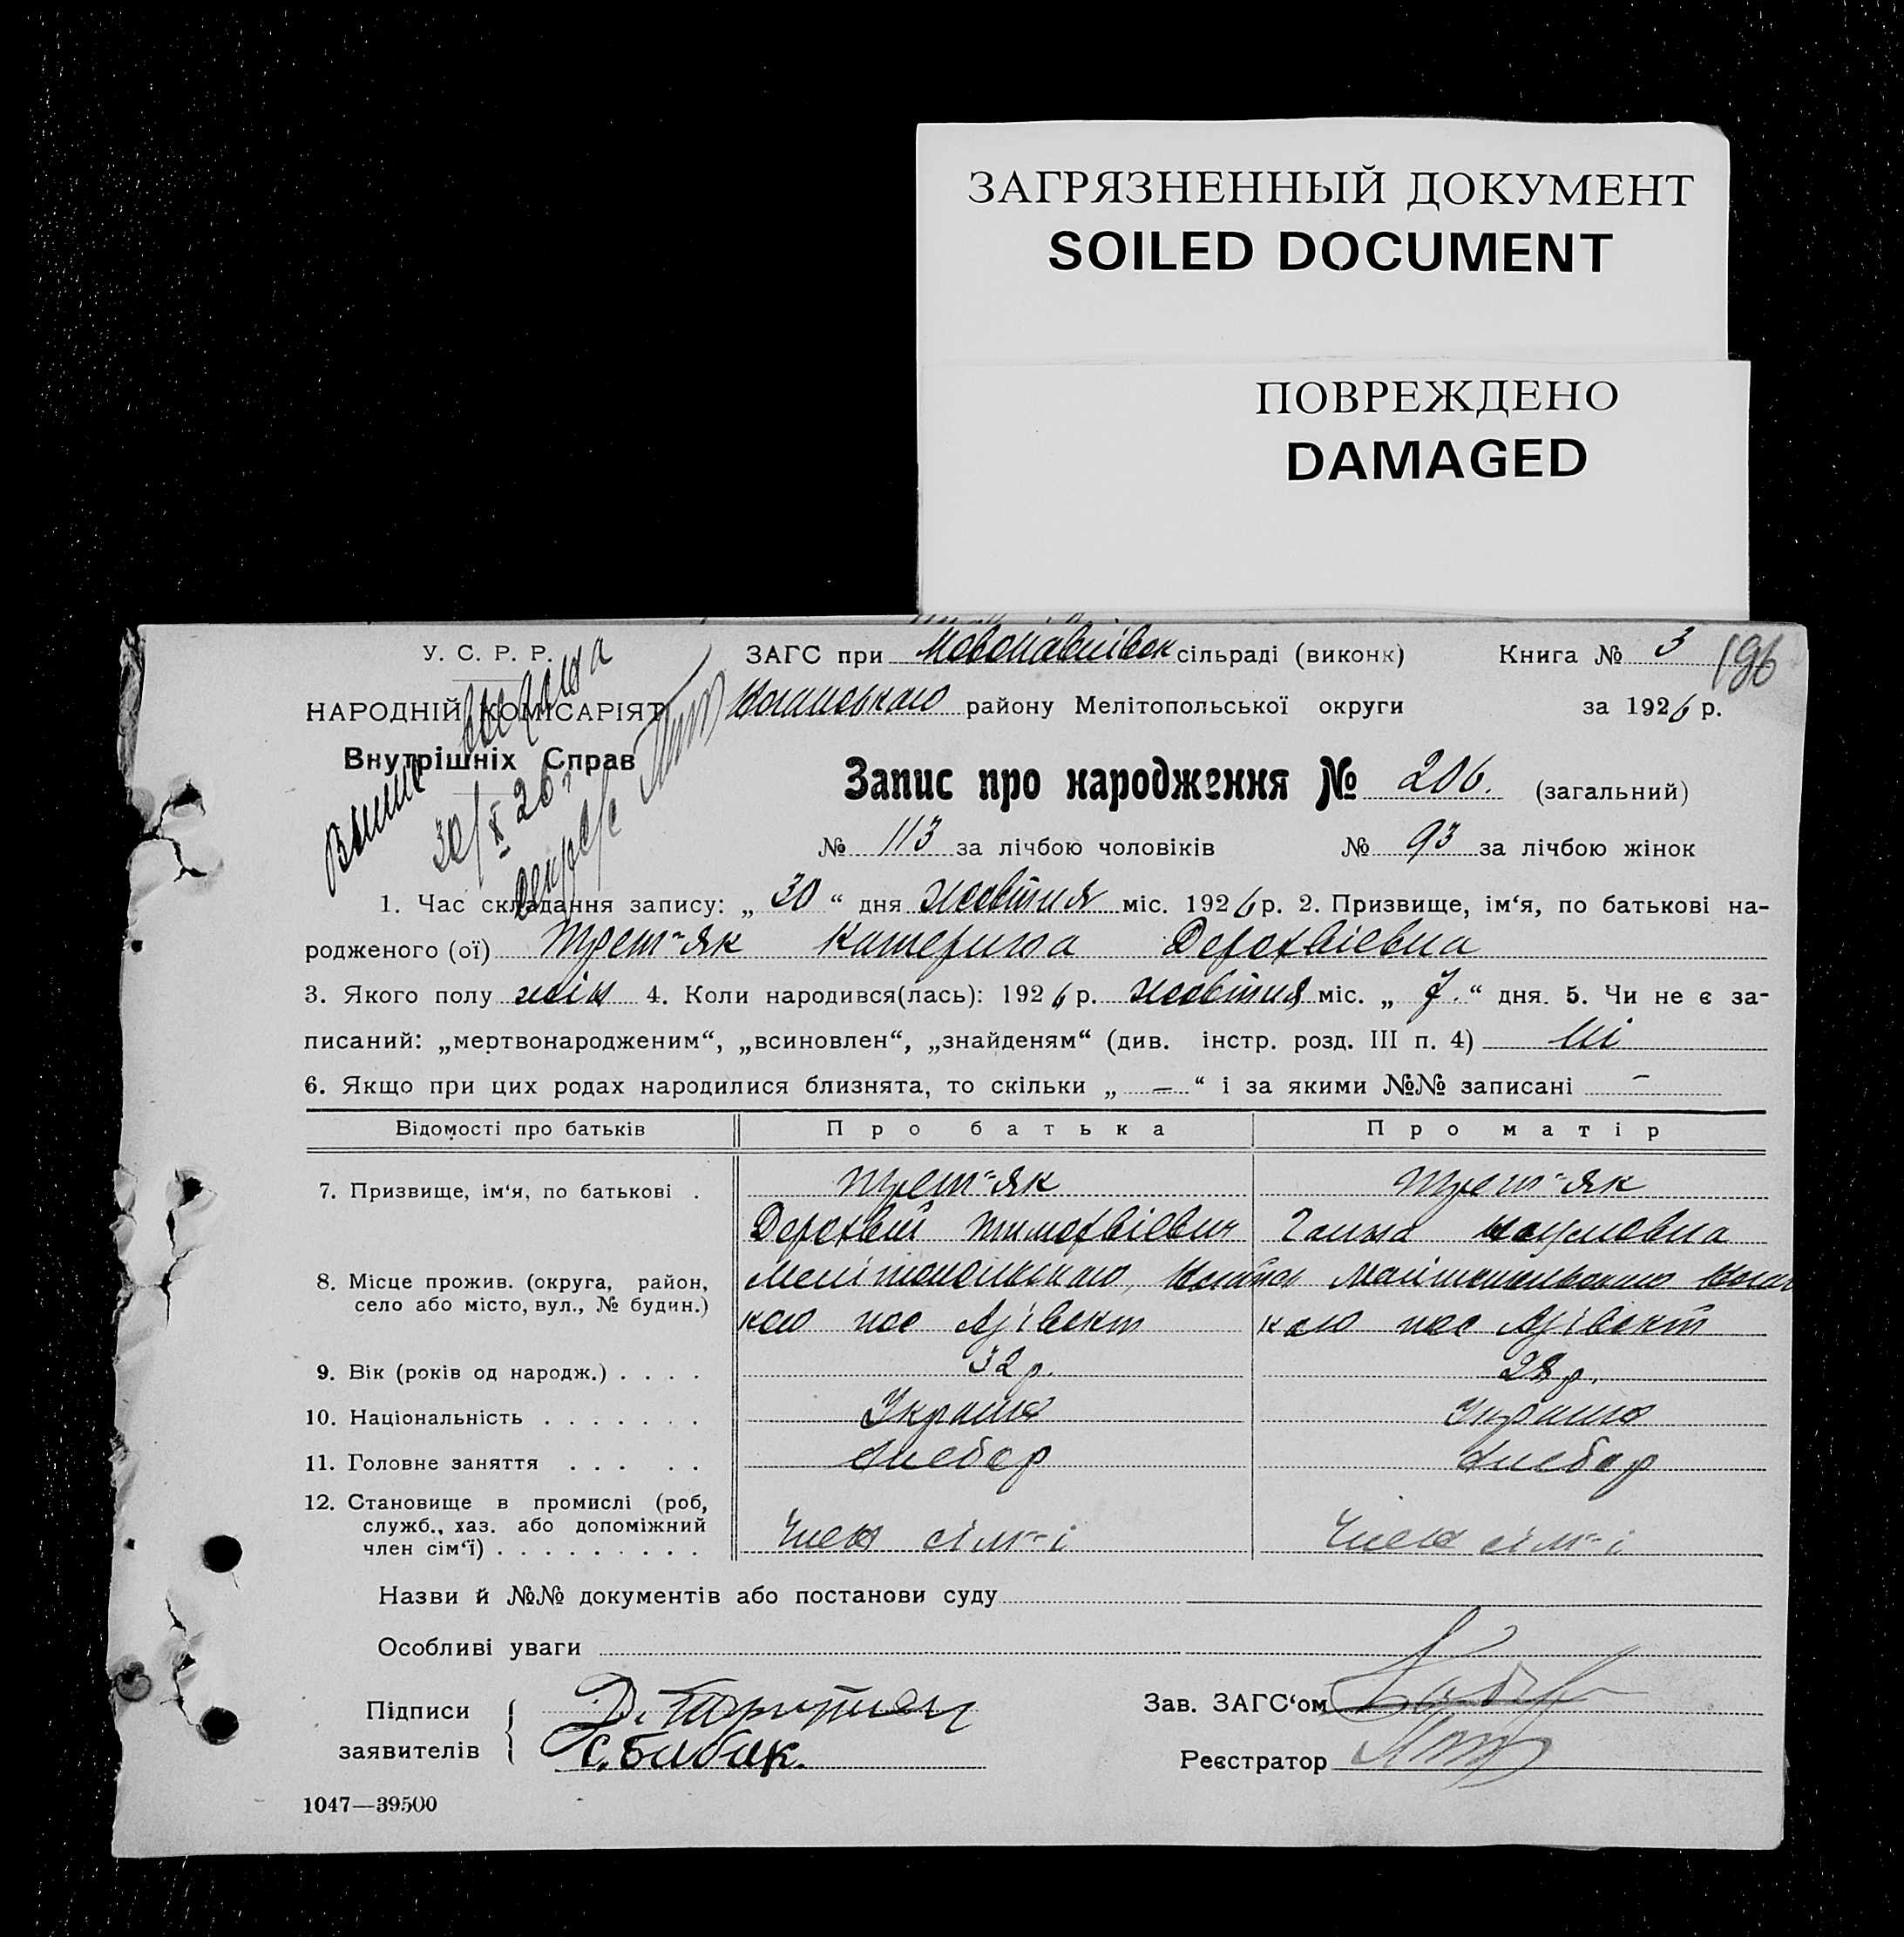 ЗАГРЯЗНЕННЫЙ ДОКУМЕНТ
SOILED DOCUMENT
ПОВРЕЖДЕНО
DAMAGED
У. С. Р. Р.
НАРОДНІЙ КОМІСАРІЯТ
Внутрішніх Справ
30/X 26 г.
ЗАГС при Новопавлівск сільраді (виконк) Книга № 3 196
району Мелітопольської округи за 1926 р.
Запис про народження № 206. (загальний)
№ 113 за лічбою чоловіків № 93 за лічбою жінок
1. Час складання запису: „ 30 “ дня жовтня міс. 1926 р. 2. Призвище, ім‘я, по батькові на-
родженого (ої) Трет"як Катерина Дорофвіевна
3. Якого полу жін 4. Коли народився(лась): 1926 р. жовтня міс. „ 7. “ дня. 5. Чи не є за-
писаний: „мертвонародженим“, „всиновлен“, „знайденям“ (див. інстр. розд. III п. 4) Ні
6. Якщо при цих родах народилися близнята, то скільки „ – “ і за якими №№ записані –
Відомості про батьків Про батька Про матір
7. Призвище, ім‘я, по батькові . Трет"як Трет"як
Дорофвій Тимофвіевич Ганна
8. Місце прожив. (округа, район,
село або місто, вул., № будин.)
кого пос кого пос
9. Вік (років од народж.) . . . . 32 р. 28 р.
10. Національність . . . . . . . Україн Україн
11. Головне заняття . . . . . Хлебор Хлебор
12. Становище в промислі (роб,
служб., хаз. або допоміжний
член сім‘ї) . . . . . . . . . Член сім"і Член сім"і
Назви й №№ документів або постанови суду
Особливі уваги
Підписи
заявителів
С. Бибик.
Зав. ЗАГС‘ом
Реєстратор
1047—39500